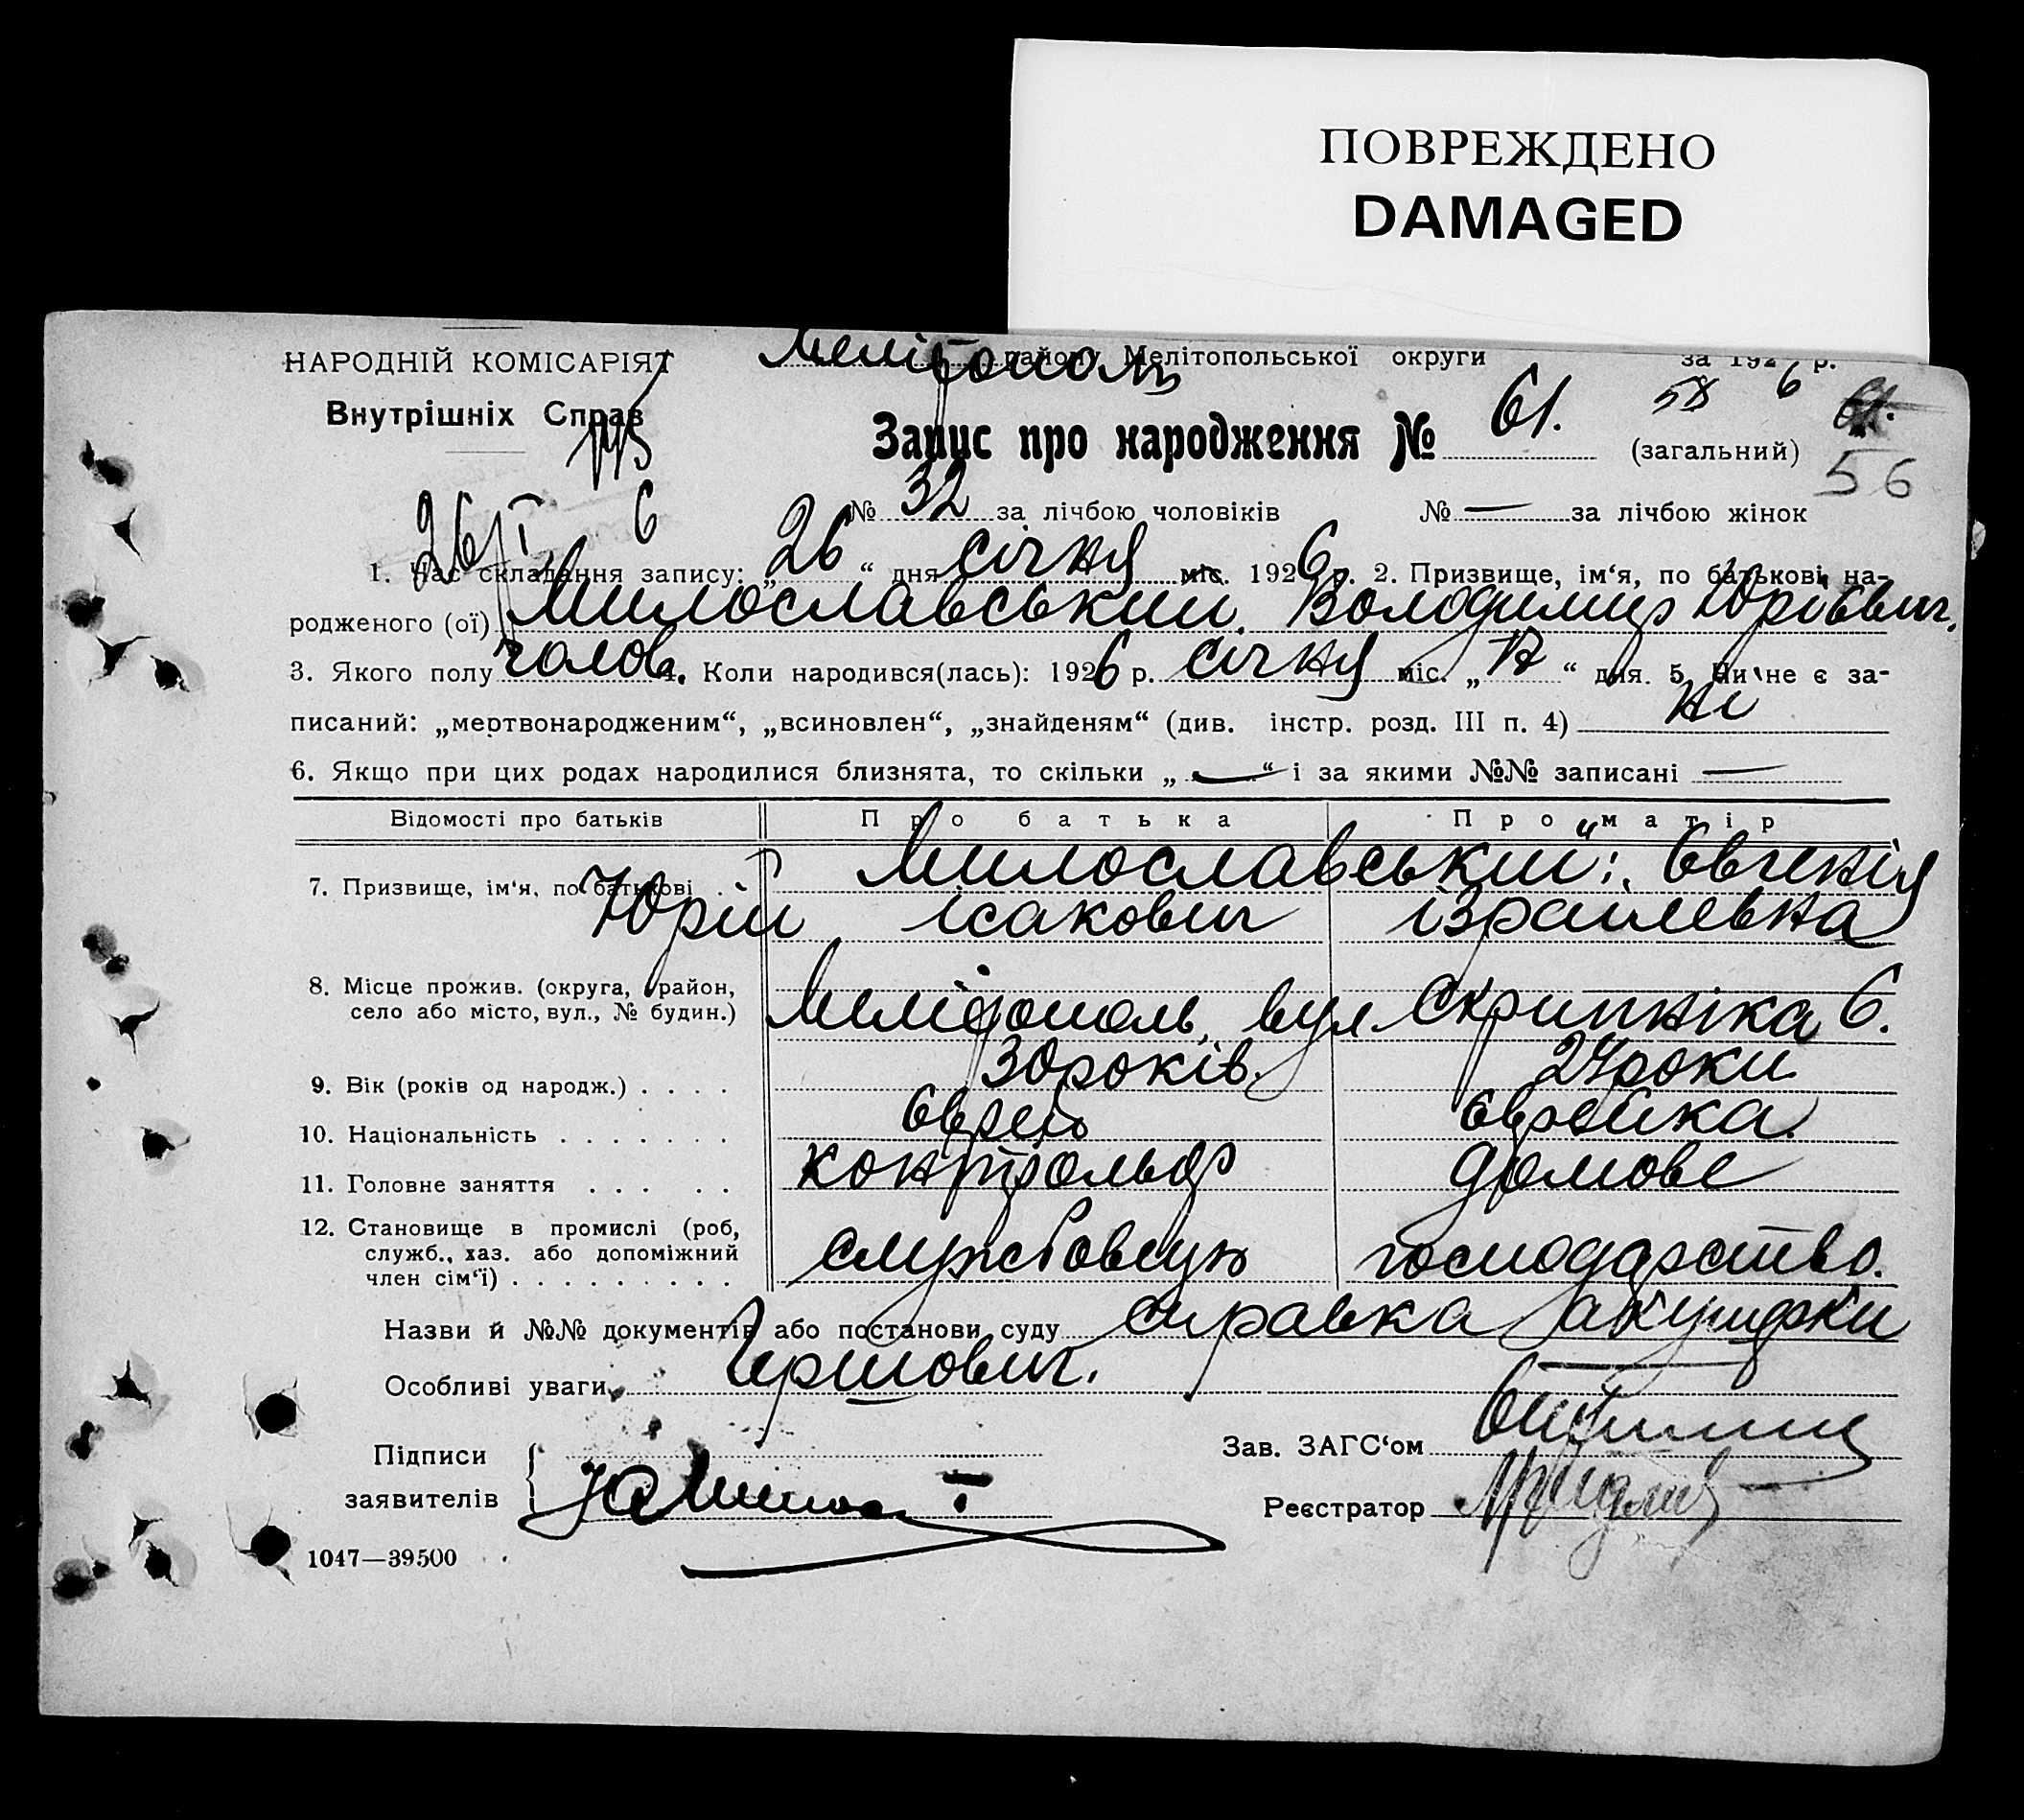 ПОВРЕЖДЕНО
DAMAGED
НАРОДНІЙ КОМІСАРІЯТ
Внутрішніх Справ
Мелітополь району Мелітопольської округи за 1926 р.
Запис про народження № 61. 58 (загальний) 61.
56
№ 32 за лічбою чоловіків № — за лічбою жінок
26/I 6
1. Час складання запису: „26“ дня січня міс. 1926 р. 2. Призвище, ім‘я, по батькові на-
родженого (ої) Милославський Володимир Юрієвич.
3. Якого полу чолов. 4. Коли народився(лась): 1926 р. січня міс. „ “ дня. 5. Чи не є за-
писаний: „мертвонародженим“, „всиновлен“, „знайденям“ (див. інстр. розд. III п. 4) ні
6. Якщо при цих родах народилися близнята, то скільки „—“ і за якими №№ записані —
Відомості про батьків Про батька Про матір
7. Призвище, ім‘я, по батькові . . Милославський: Євгенія
Юрій Ісакович Ізраилевна
8. Місце прожив. (округа, район,
село або місто, вул., № будин.) Мелітополь, вул Скрипніка 6.
9. Вік (років од народж.) . . . . 30 років. 24 роки
10. Національність . . . . . . . Єврей Єврейка.
11. Головне заняття . . . . . контрольор домове
12. Становище в промислі (роб,
служб., хаз. або допоміжний
член сім‘ї) . . . . . . . . . службовець господарство.
Назви й №№ документів або постанови суду справка акушерки
Особливі уваги Гершович.
Підписи
заявителів
Зав. ЗАГС‘ом
Реєстратор
1047—39500